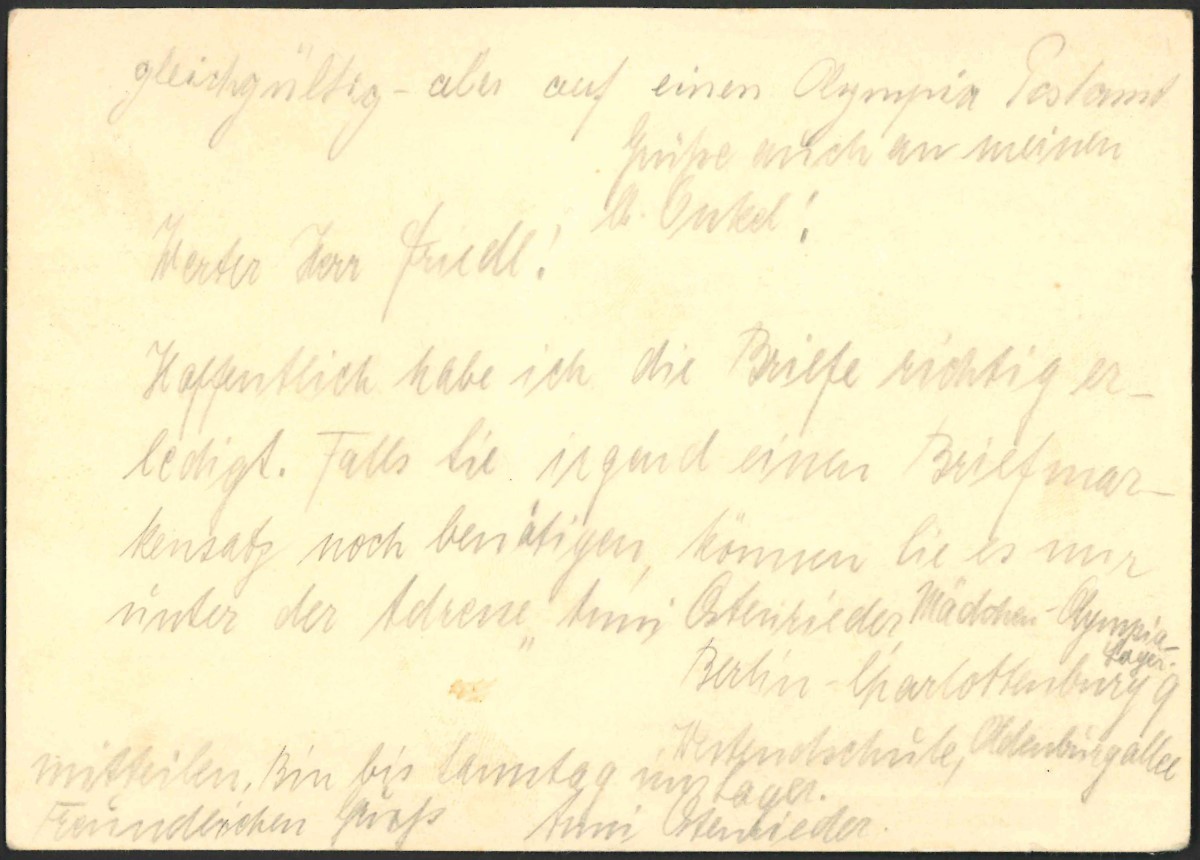 gleichgültig – aber auf einen Olympia Postamt
Grüße auch an meinen
Onkel!
Werter Herr Friedl!
Hoffentlich habe ich die Briefe richtig er-
ledigt. Falls Sie irgend einen Briefmar-
kensatz noch benötigen, können Sie es mir
unter der Adresse „Anni Ostenrieder Mädchen-Olympia-
lager.
Berlin-Charlottenburg 9
Westendschule, Oldenburgallee
mitteilen. Bin bis Sonntag im Lager.
Freundlichen Gruß Anni Ostenrieder.